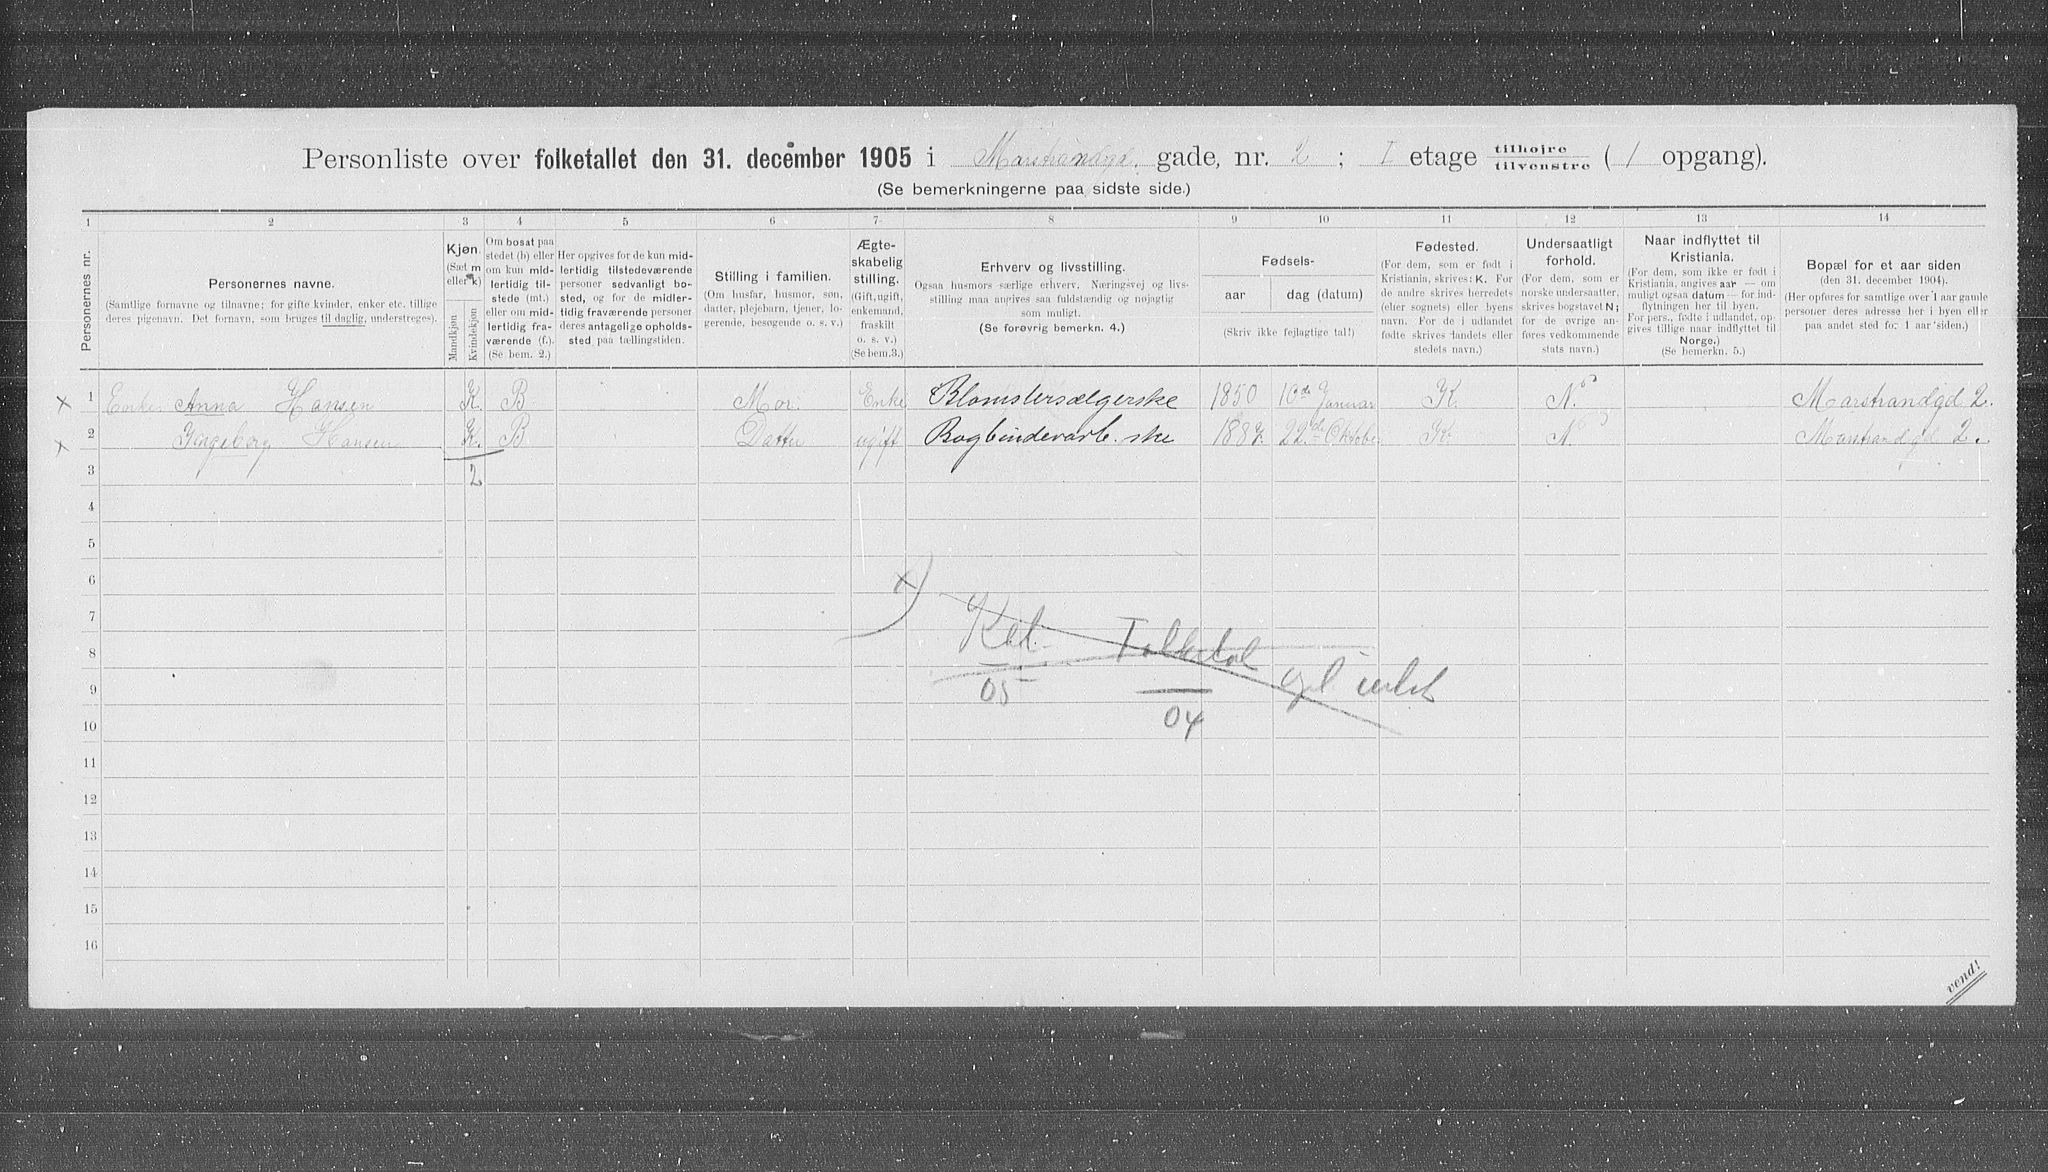 Personliste over folketallet den 31. december 1905 i Marstrandgd. gade, nr. 2 ; I etage tilhøjre tilvenstre ( 1 opgang).
(Se bemerkningerne paa sidste side.)
1 2 3 4 5 6 7 8 9 10 11 12 13 14
Personernes nr.
Personernes navne.
(Samtlige fornavne og tilnavne; for gifte kvinder, enker etc. tillige
deres pigenavn. Det fornavn, som bruges til daglig, understreges).
Kjøn.
(Sæt m
eller k)
Mandkjøn
Kvindekjøn
Om bosat paa
stedet (b) eller
om kun mid-
lertidig til-
stede (mt.)
eller om mid-
lertidig fra-
værende (f.).
(Se bem. 2.)
Her opgives for de kun mid-
lertidig tilstedeværende
personer sedvanligt bo-
sted, og for de midler-
tidig fraværende personer
deres antagelige opholds-
sted paa tællingstiden.
Stilling i familien.
(Om husfar, husmor, søn,
datter, plejebarn, tjener, lo-
gerende, besøgende o. s. v.)
Ægte-
skabelig
stilling.
(Gift, ugift,
enkemand,
fraskilt
o. s. v.)
(Se bem. 3.)
Erhverv og livsstilling.
Ogsaa husmors særlige erhverv. Næringsvej og livs-
stilling maa angives saa fuldstændig og nøjagtig
som muligt.
(Se forøvrig bemerkn. 4.)
Fødsels-
aar dag (datum)
(Skriv ikke fejlagtige tal!)
Fødested.
(For dem, som er født i
Kristiania, skrives: K. For
de andre skrives herredets
(eller sognets) eller byens
navn. For de i udlandet
fødte skrives landets eller
stedets navn.)
Undersaatligt
forhold.
(For dem, som er
norske undersaatter,
skrives bogstavet N;
for de øvrige an-
føres vedkommende
stats navn.)
Naar indflyttet til
Kristiania.
(For dem, som ikke er født i
Kristiania, angives aar — om
muligt ogsaa datum — for ind-
flytningen her til byen.
For pers., fødte i udlandet, op-
gives tillige naar indflyttet til
Norge.)
(Se bemerkn. 5.)
Bopæl for et aar siden
(den 31. december 1904).
(Her opføres for samtlige over 1 aar gamle
personer deres adresse her i byen eller
paa andet sted for 1 aar siden.)
x 1 Enke Anna Hansen K. B Mor. Enke Blomstersælgerske 1850 10de Januar K. N. Marstrandgd 2.
x 2 Ingeborg Hansen K. B Datter ugift Bogbinderarb.ske 1887. 22de Oktober K. N. Marstrandgd 2.
3 2
4
5
6 x)
7
8 Folketal
9 05
10 04
11
12
13
14
15
16
vend!